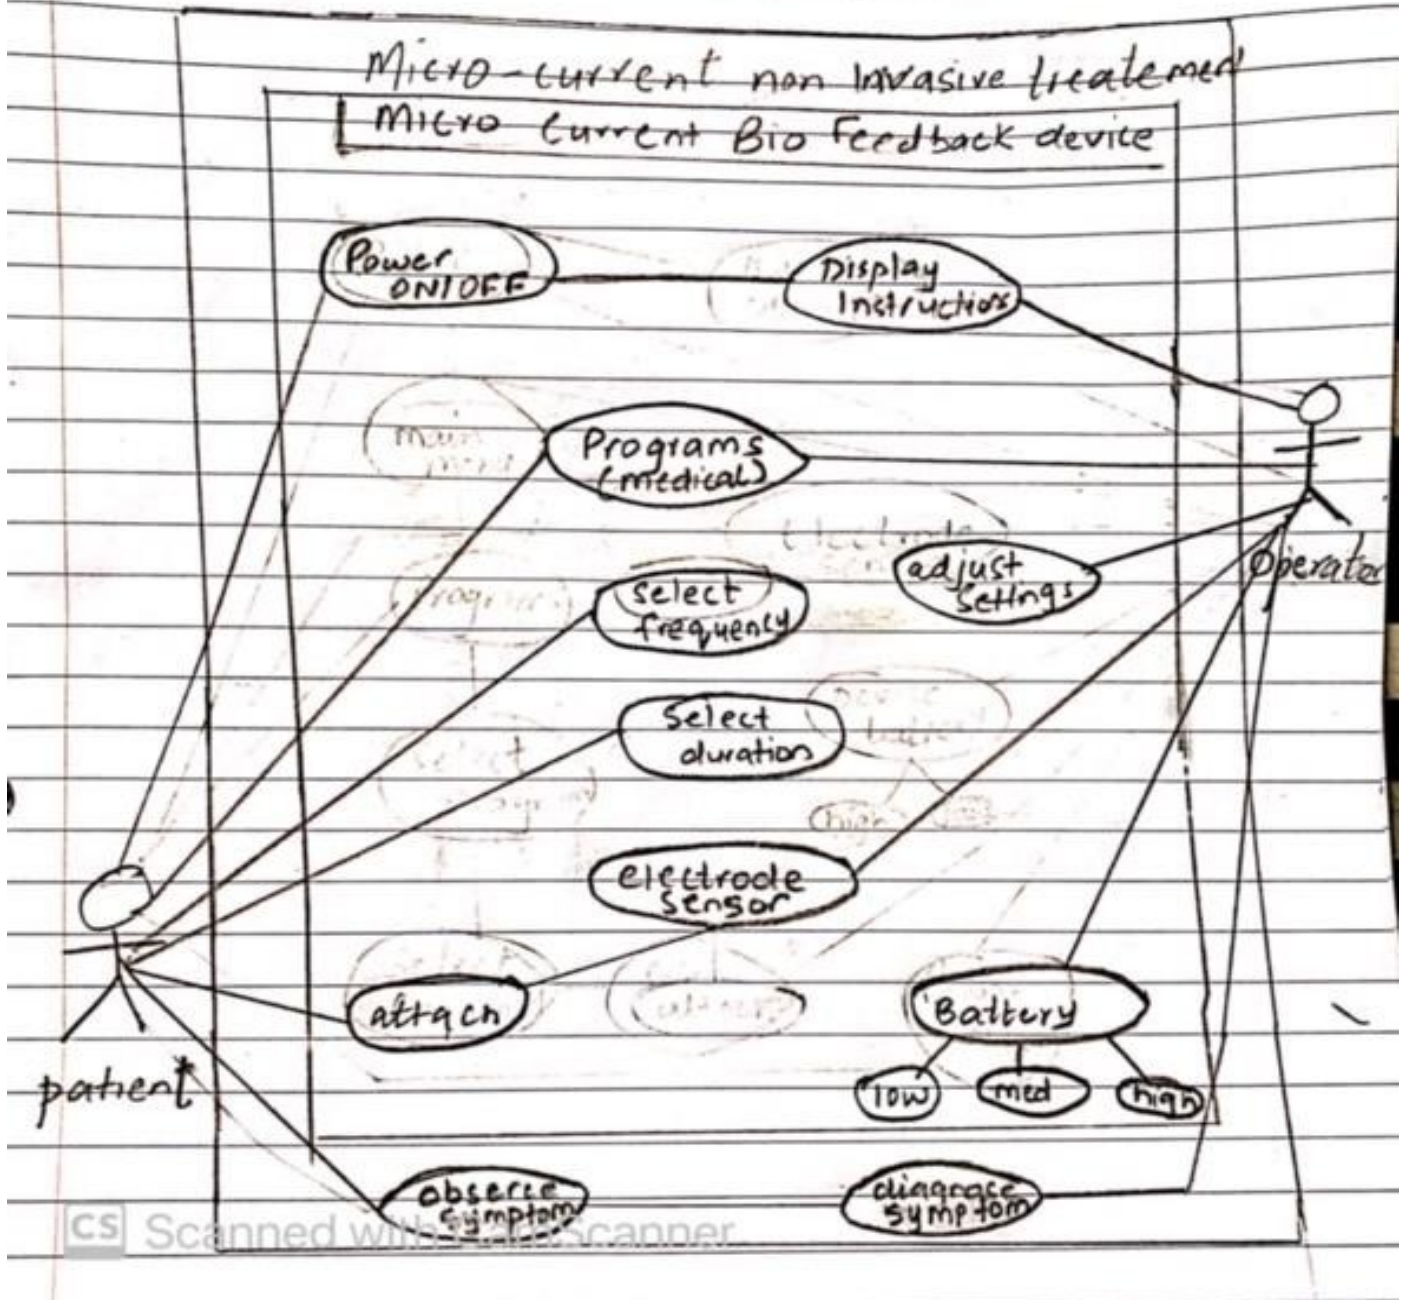 Micro-current non Invasive treatemen
Micro Current Bio Feedback device
Power
ON/OFF
Display
Instructions
main
Programs
(medical)
Electrode
adjust
settings
Operator
select
frequency
Program
Select
duration
Select
high
electrode
sensor
attach
Battery
low
med
high
patient
observe
symptom
diagnose
symptom
CS Scanned with CamScanner